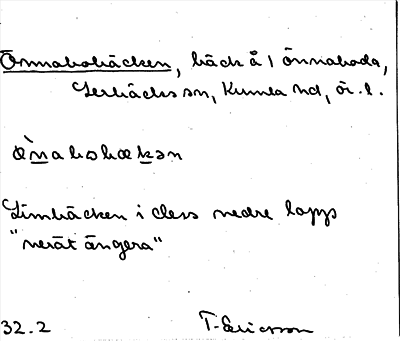 Önnabobäcken, bäck å 1 Önnaboda,
Lerbäcks sn, Kumla hd, ör. l.
ø̀nabobækən
Limbäcken i dess nedre lopp
"neråt ängera"
32.2 T. Ericsson